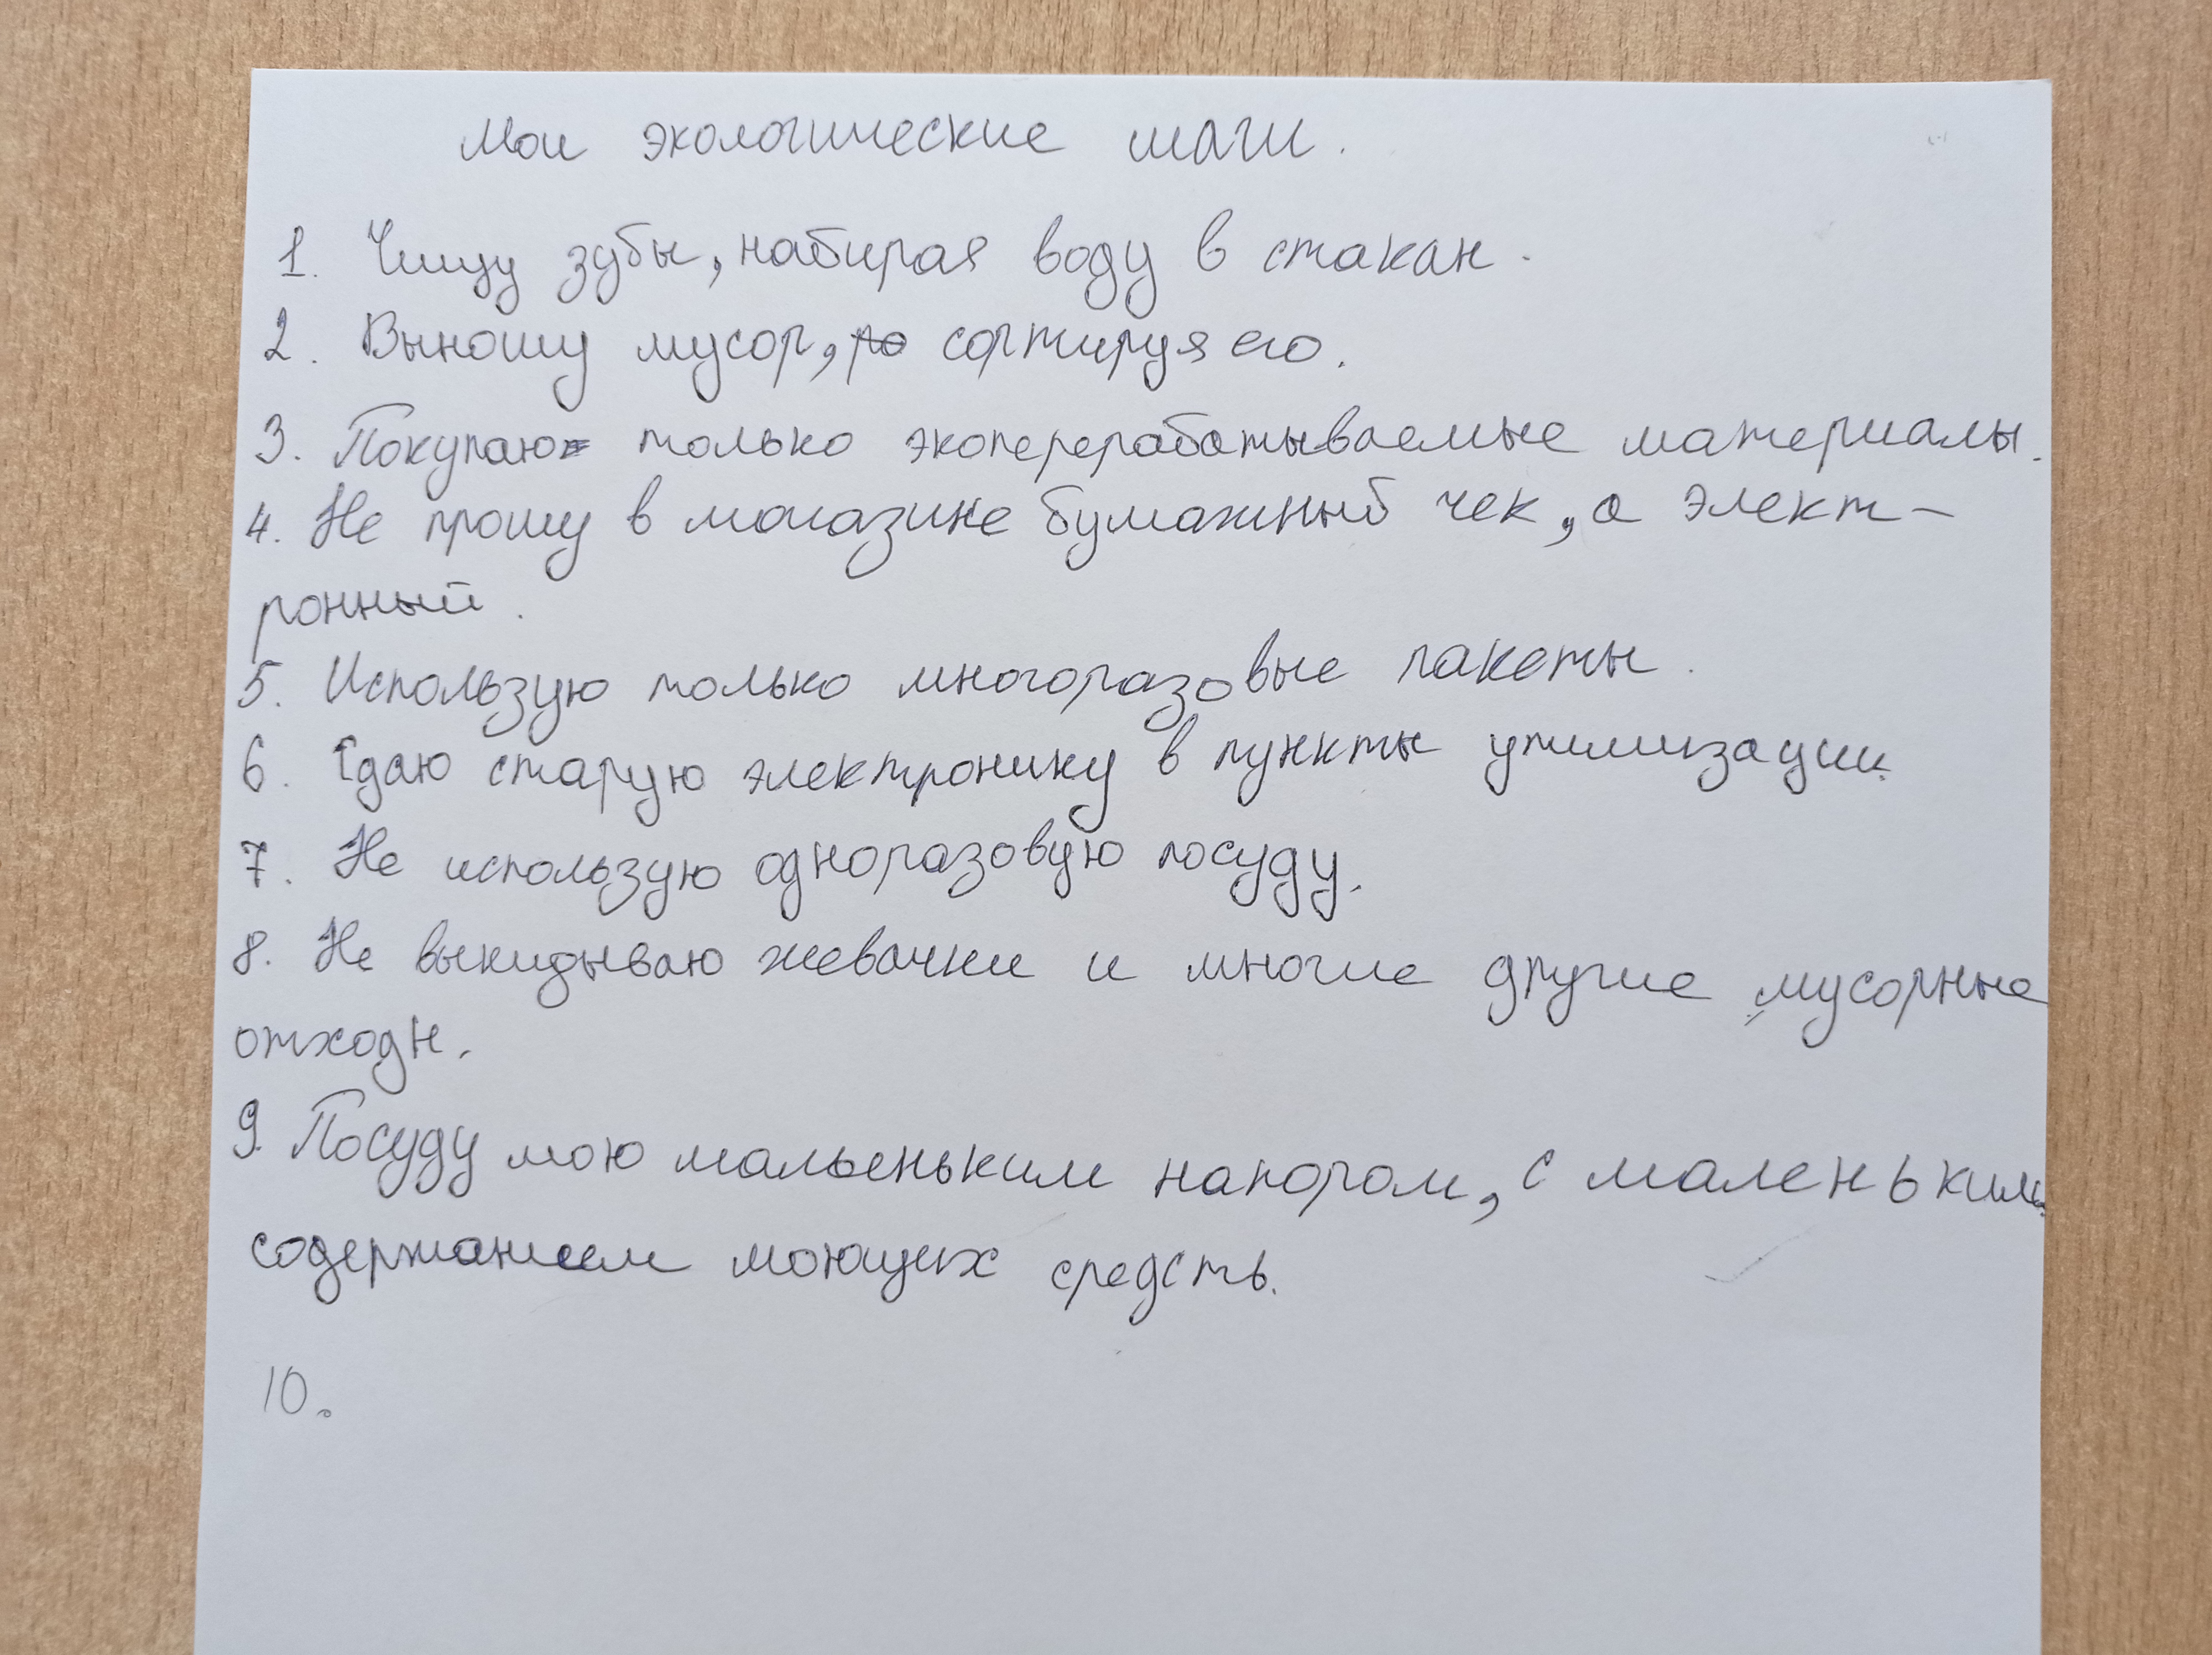 Мои экологические шаги.
1. Чищу зубы, набирая воду в стакан.
2. Выношу мусор, сортируя его.
3. Покупаю только экоперерабатываемые материалы.
4. Не прошу в магазине бумажный чек, а элект-
ронный.
5. Использую только многоразовые пакеты.
6. Сдаю старую электронику в пункты утилизации.
7. Не использую одноразовую посуду.
8. Не выкидываю жевачки и многие другие мусорные
отходы.
9. Посуду мою мальеньким напором, с маленьким
содержанием моющих средсть.
10.